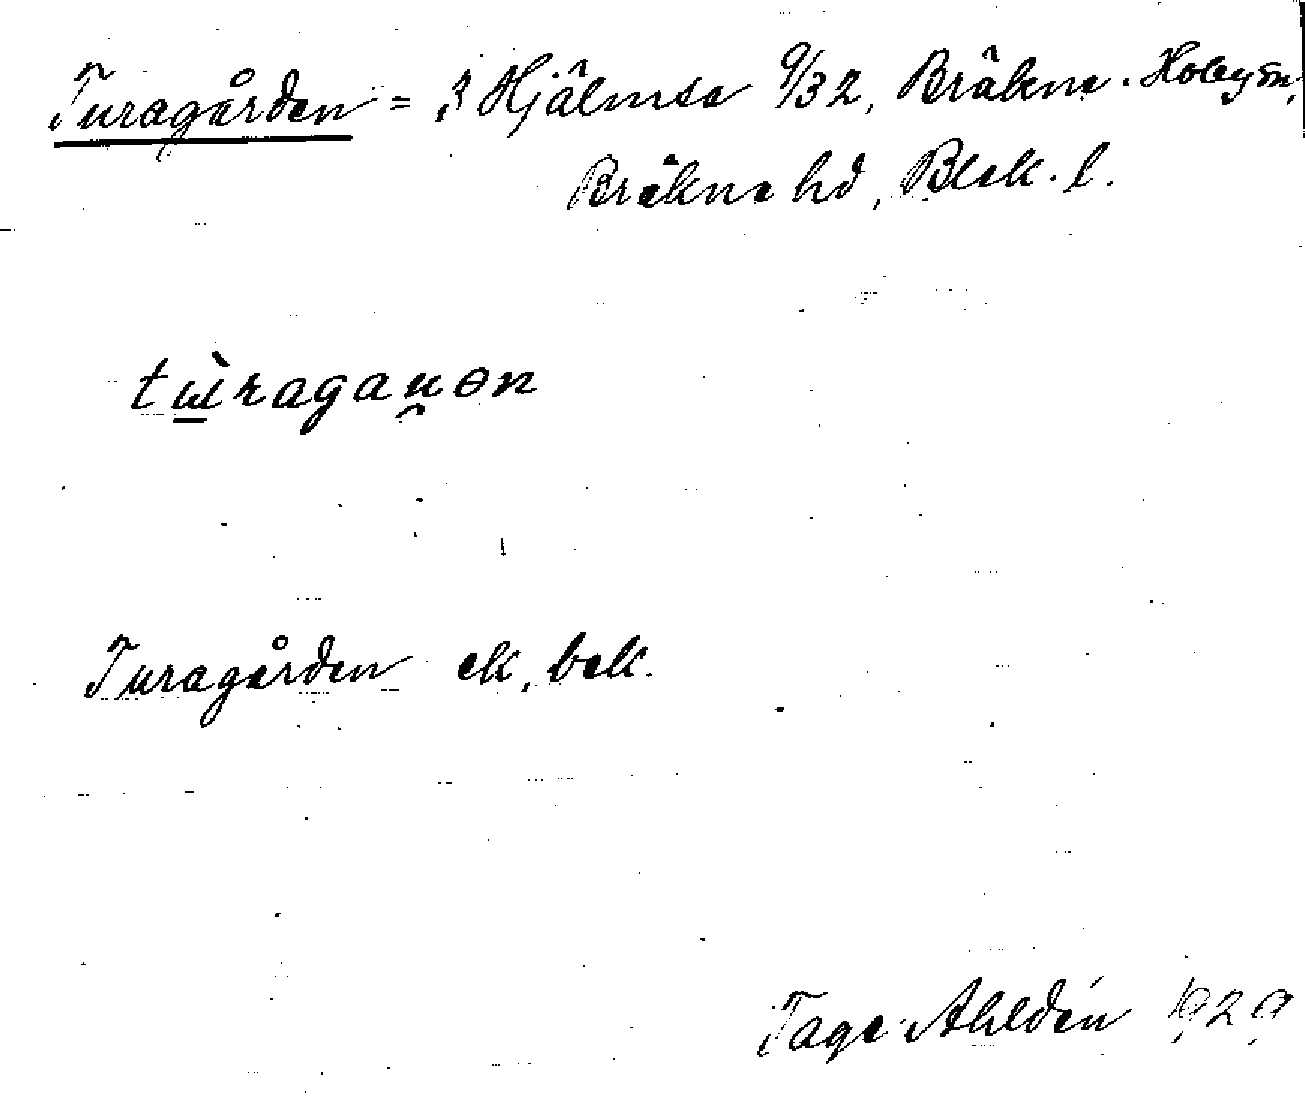 Turagården = 3 Hjälmsa 9/32, Bräkne-Hoby sn,
Bräkne hd, Blek. l.
tɯ̀ragaṷɘn
Turagården ek, bek.
Tage Ahldén 1929